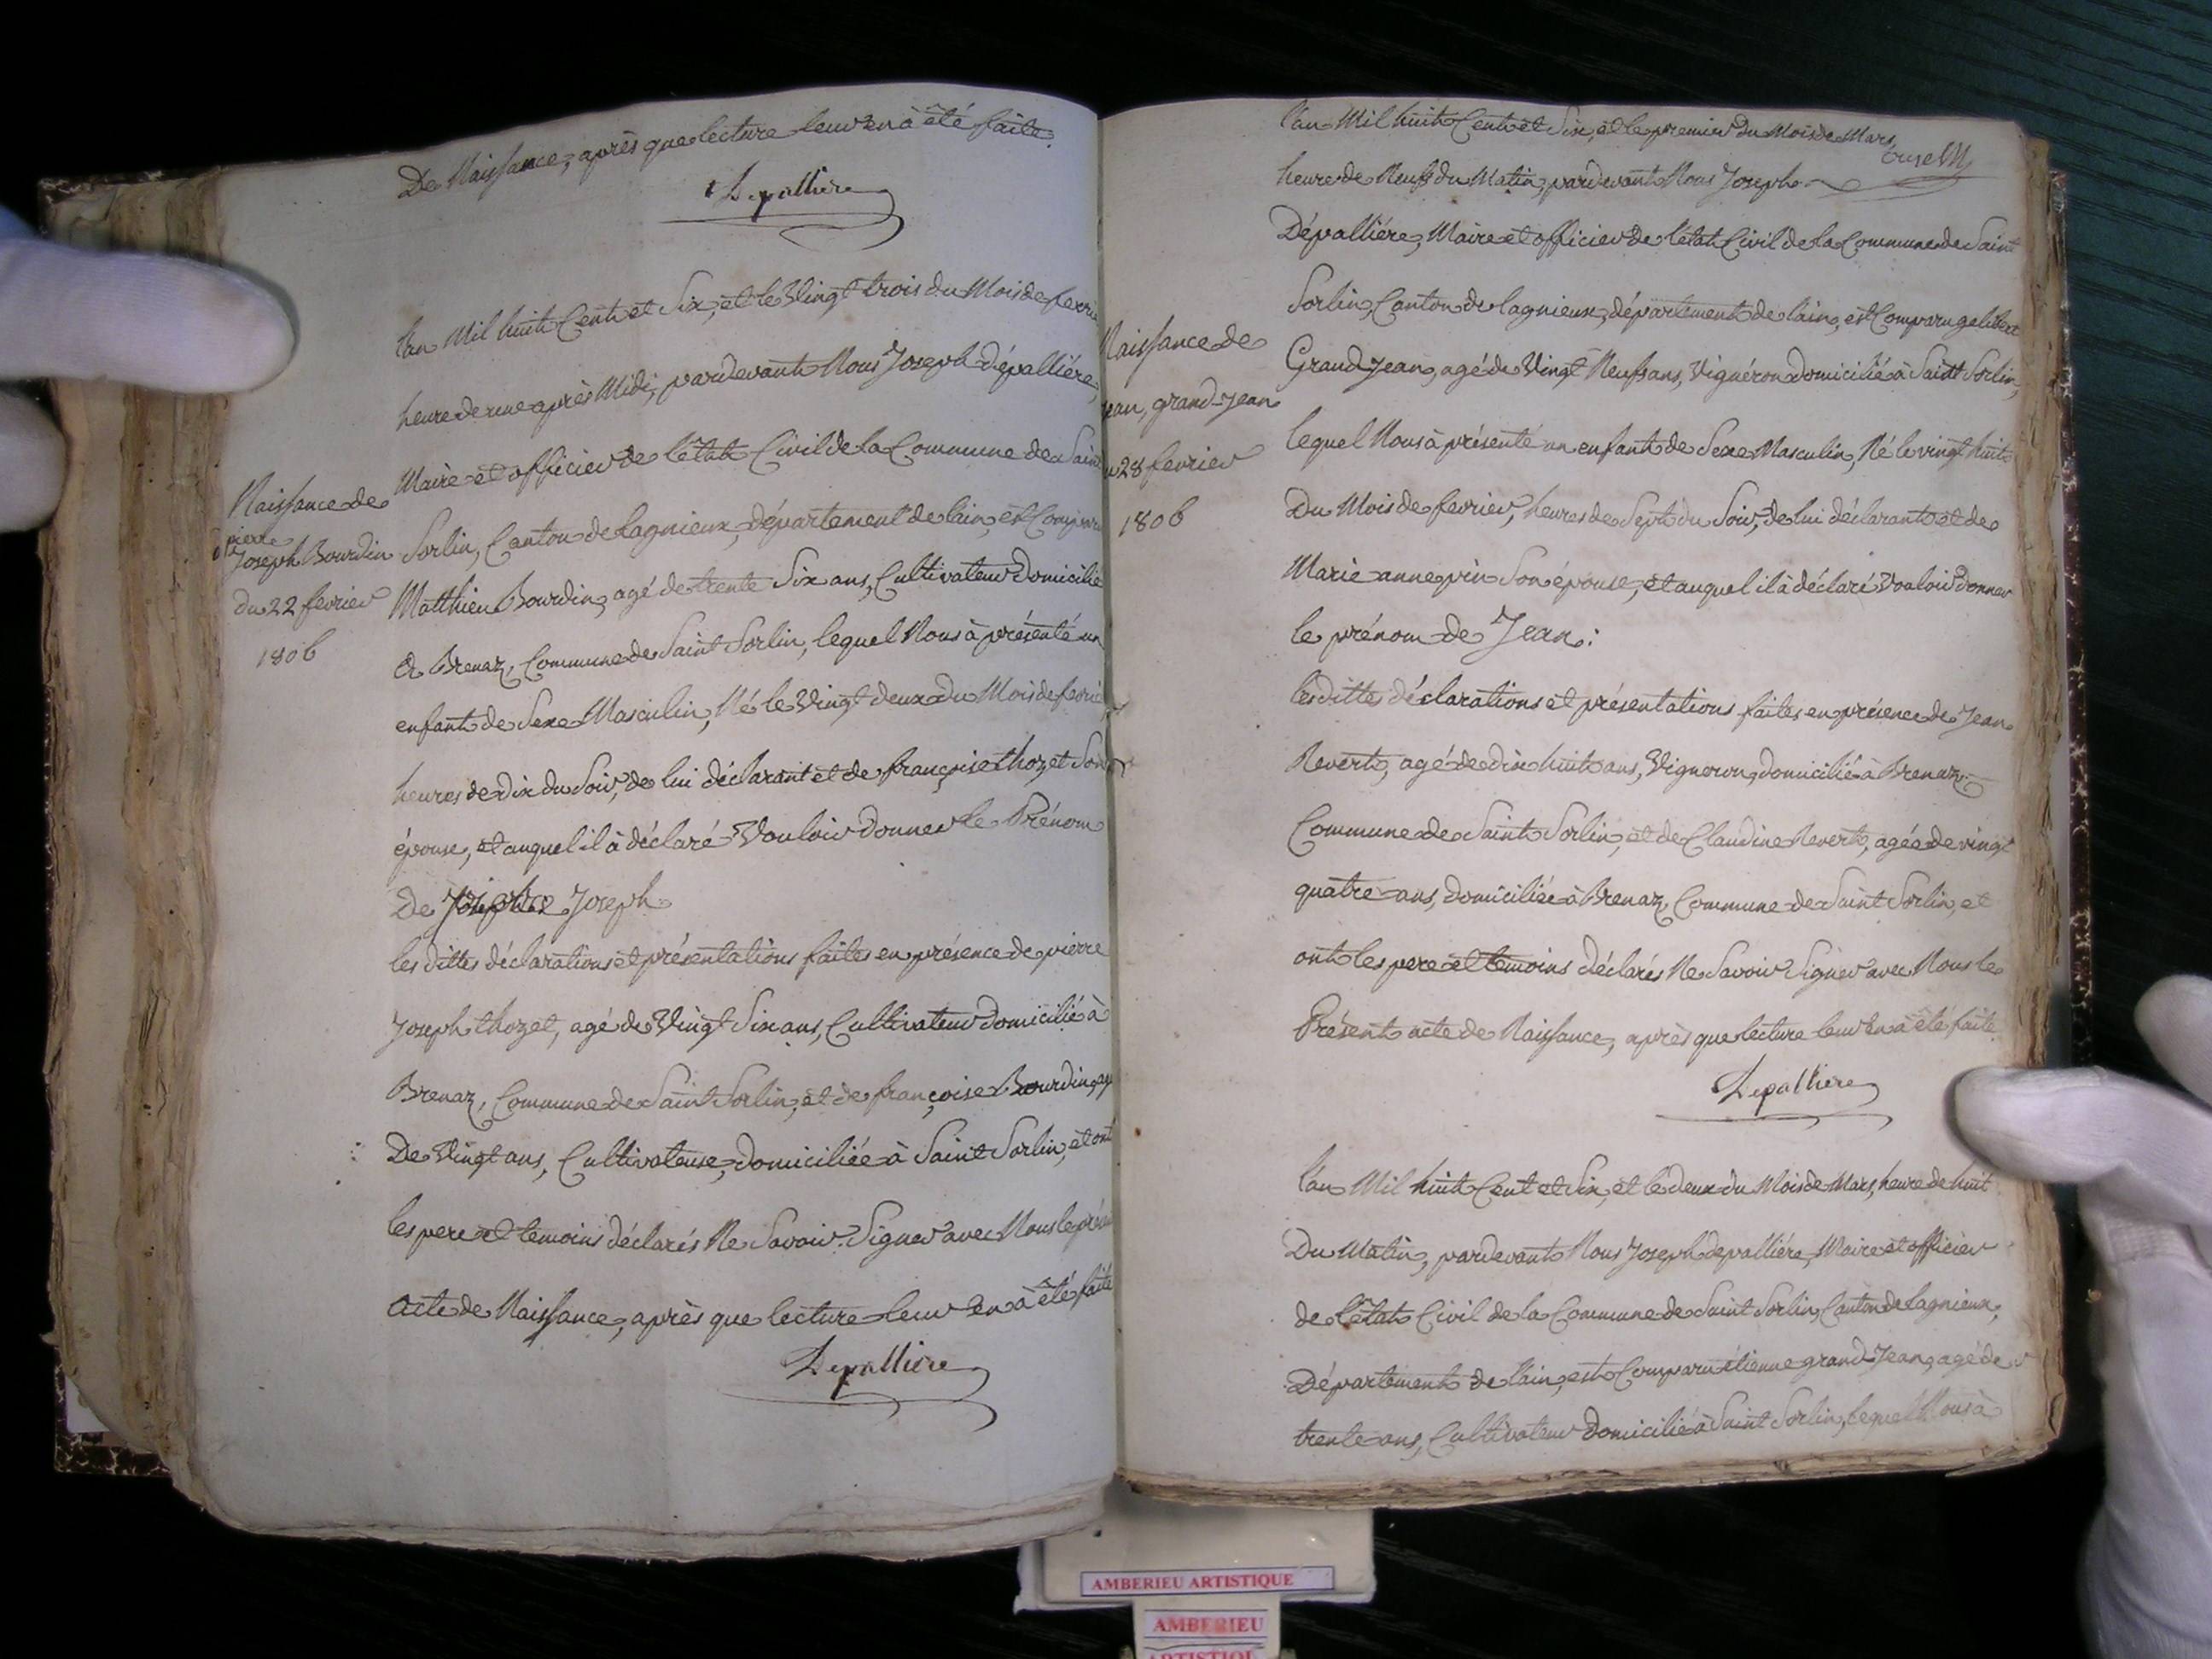 De Naissance, après que lecture leur en à été faite.
Depalliere
l'an Mil huit Cent et Six, et le Vingt trois du Mois de fevrie
heure de une après Midi, pardevant Nous Joseph dépalliére,
Maire et officier de l'état Civil de la Commune de Saint
Naissance de
pierre
Joseph Bourdin
du 22 fevrier
1806
Sorlin, Canton de Lagnieux, département de lain, est Comparu
Matthieu Bourdin, agé de trente Six ans, Cultivateur domicilié
à Brenaz, Commune de Saint Sorlin, lequel Nous à présenté un
enfant de Sexe Masculin, Né le Vingt deux du Mois de fevrie
heures de dix du Soir, de lui déclarant et de françoise thozet Son
épouse, et auquel il à déclaré Vouloir donner le Prénom
De Joseph
les dittes déclarations et présentations faites en présence de pierre
Joseph thozet, agé de Vingt Six ans, Cultivateur domicilié à
Brenaz, Commune de Saint Sorlin, et de françoise Bourdin, ag
De Vingt ans, Cultivateuse, domiciliée à Saint Sorlin, et ont
les pere et temoins déclarés Ne Savoir Signer avec Nous le prés
Acte de Naissance, après que lecture leur en à été faite
Depalliere
l'an Mil huit Cent et Six, et le premier du Mois de Mars,
heure de Neuf du Matin, pardevant Nous Joseph
Dépalliére, Maire et officier de l'état Civil de la Commune de Saint
Sorlin, Canton de lagnieux, département de lain, est Comparu gelibert
Naissance de
Jean, grand-Jean
du 28 fevrier
1806
Grand Jean, agé de Vingt Neuf ans, Vignéron domicilié à Saint Sorlin,
lequel Nous à présenté un enfant de Sexe Masculin, Né le vingt huit
Du Mois de fevrier, heures de Sept du Soir, de lui déclarant et de
Marie anne pin Son épouse, et auquel il à déclaré Vouloir donner
le prénom de Jean:
les dittes déclarations et présentations faites en présence de Jean
Revert, agé de dix huit ans, Vigneron, domicilié à Brenaz
Commune de Saint Sorlin, et de Claudine Revert, agée de vingt
quatre ans, domiciliée à Brenaz, Commune de Saint Sorlin, et
ont les pere et temoins déclarés Ne Savoir Signer avec Nous le
Présent acte de Naissance, après que lecture leur En à été faite
Depalliere
l'an Mil huit Cent et Six, et le deux du Mois de Mars, heure de huit
Du Matin, pardevant Nous Joseph depalliére, Maire et officier
de l'état Civil de la Commune de Saint Sorlin, Canton de Lagnieux,
Département de l'ain, est Comparu étienne grand Jean, agé de
trente ans, Cultivateur domicilié à Saint Sorlin, lequel Nous à
AMBERIEU ARTISTIQUE
AMBERIEU
ARTISTIQUE